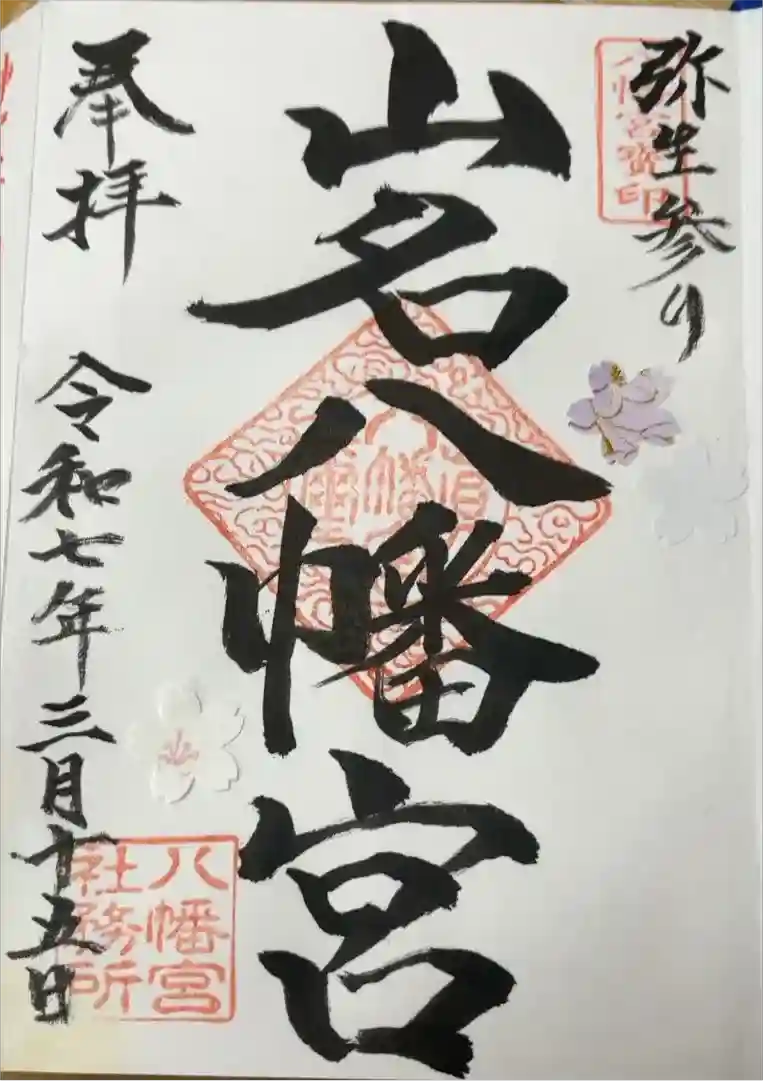 弥生参り
八幡宮寳印
山名八幡宮
奉拝
令和七年三月十五日
八幡宮
社務所